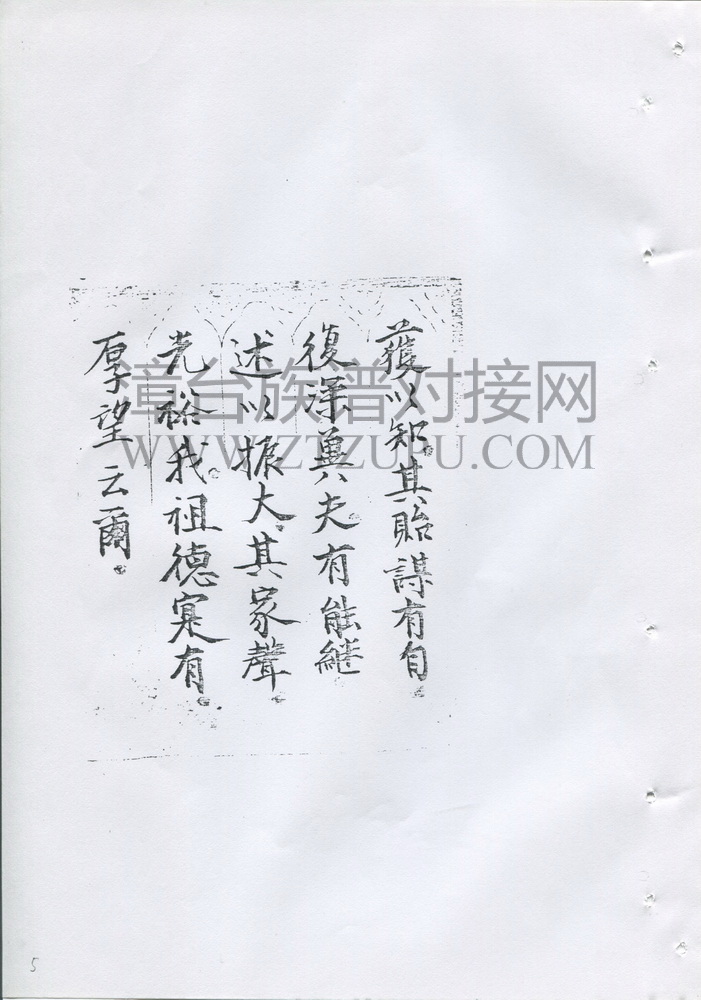 獲以知其貽謀有自。
復深冀夫有能繼
述以振大其家聲。
光裕我祖德寔有。
厚望云爾。
漳台族谱对接网
WWW.ZTZUPU.COM
5